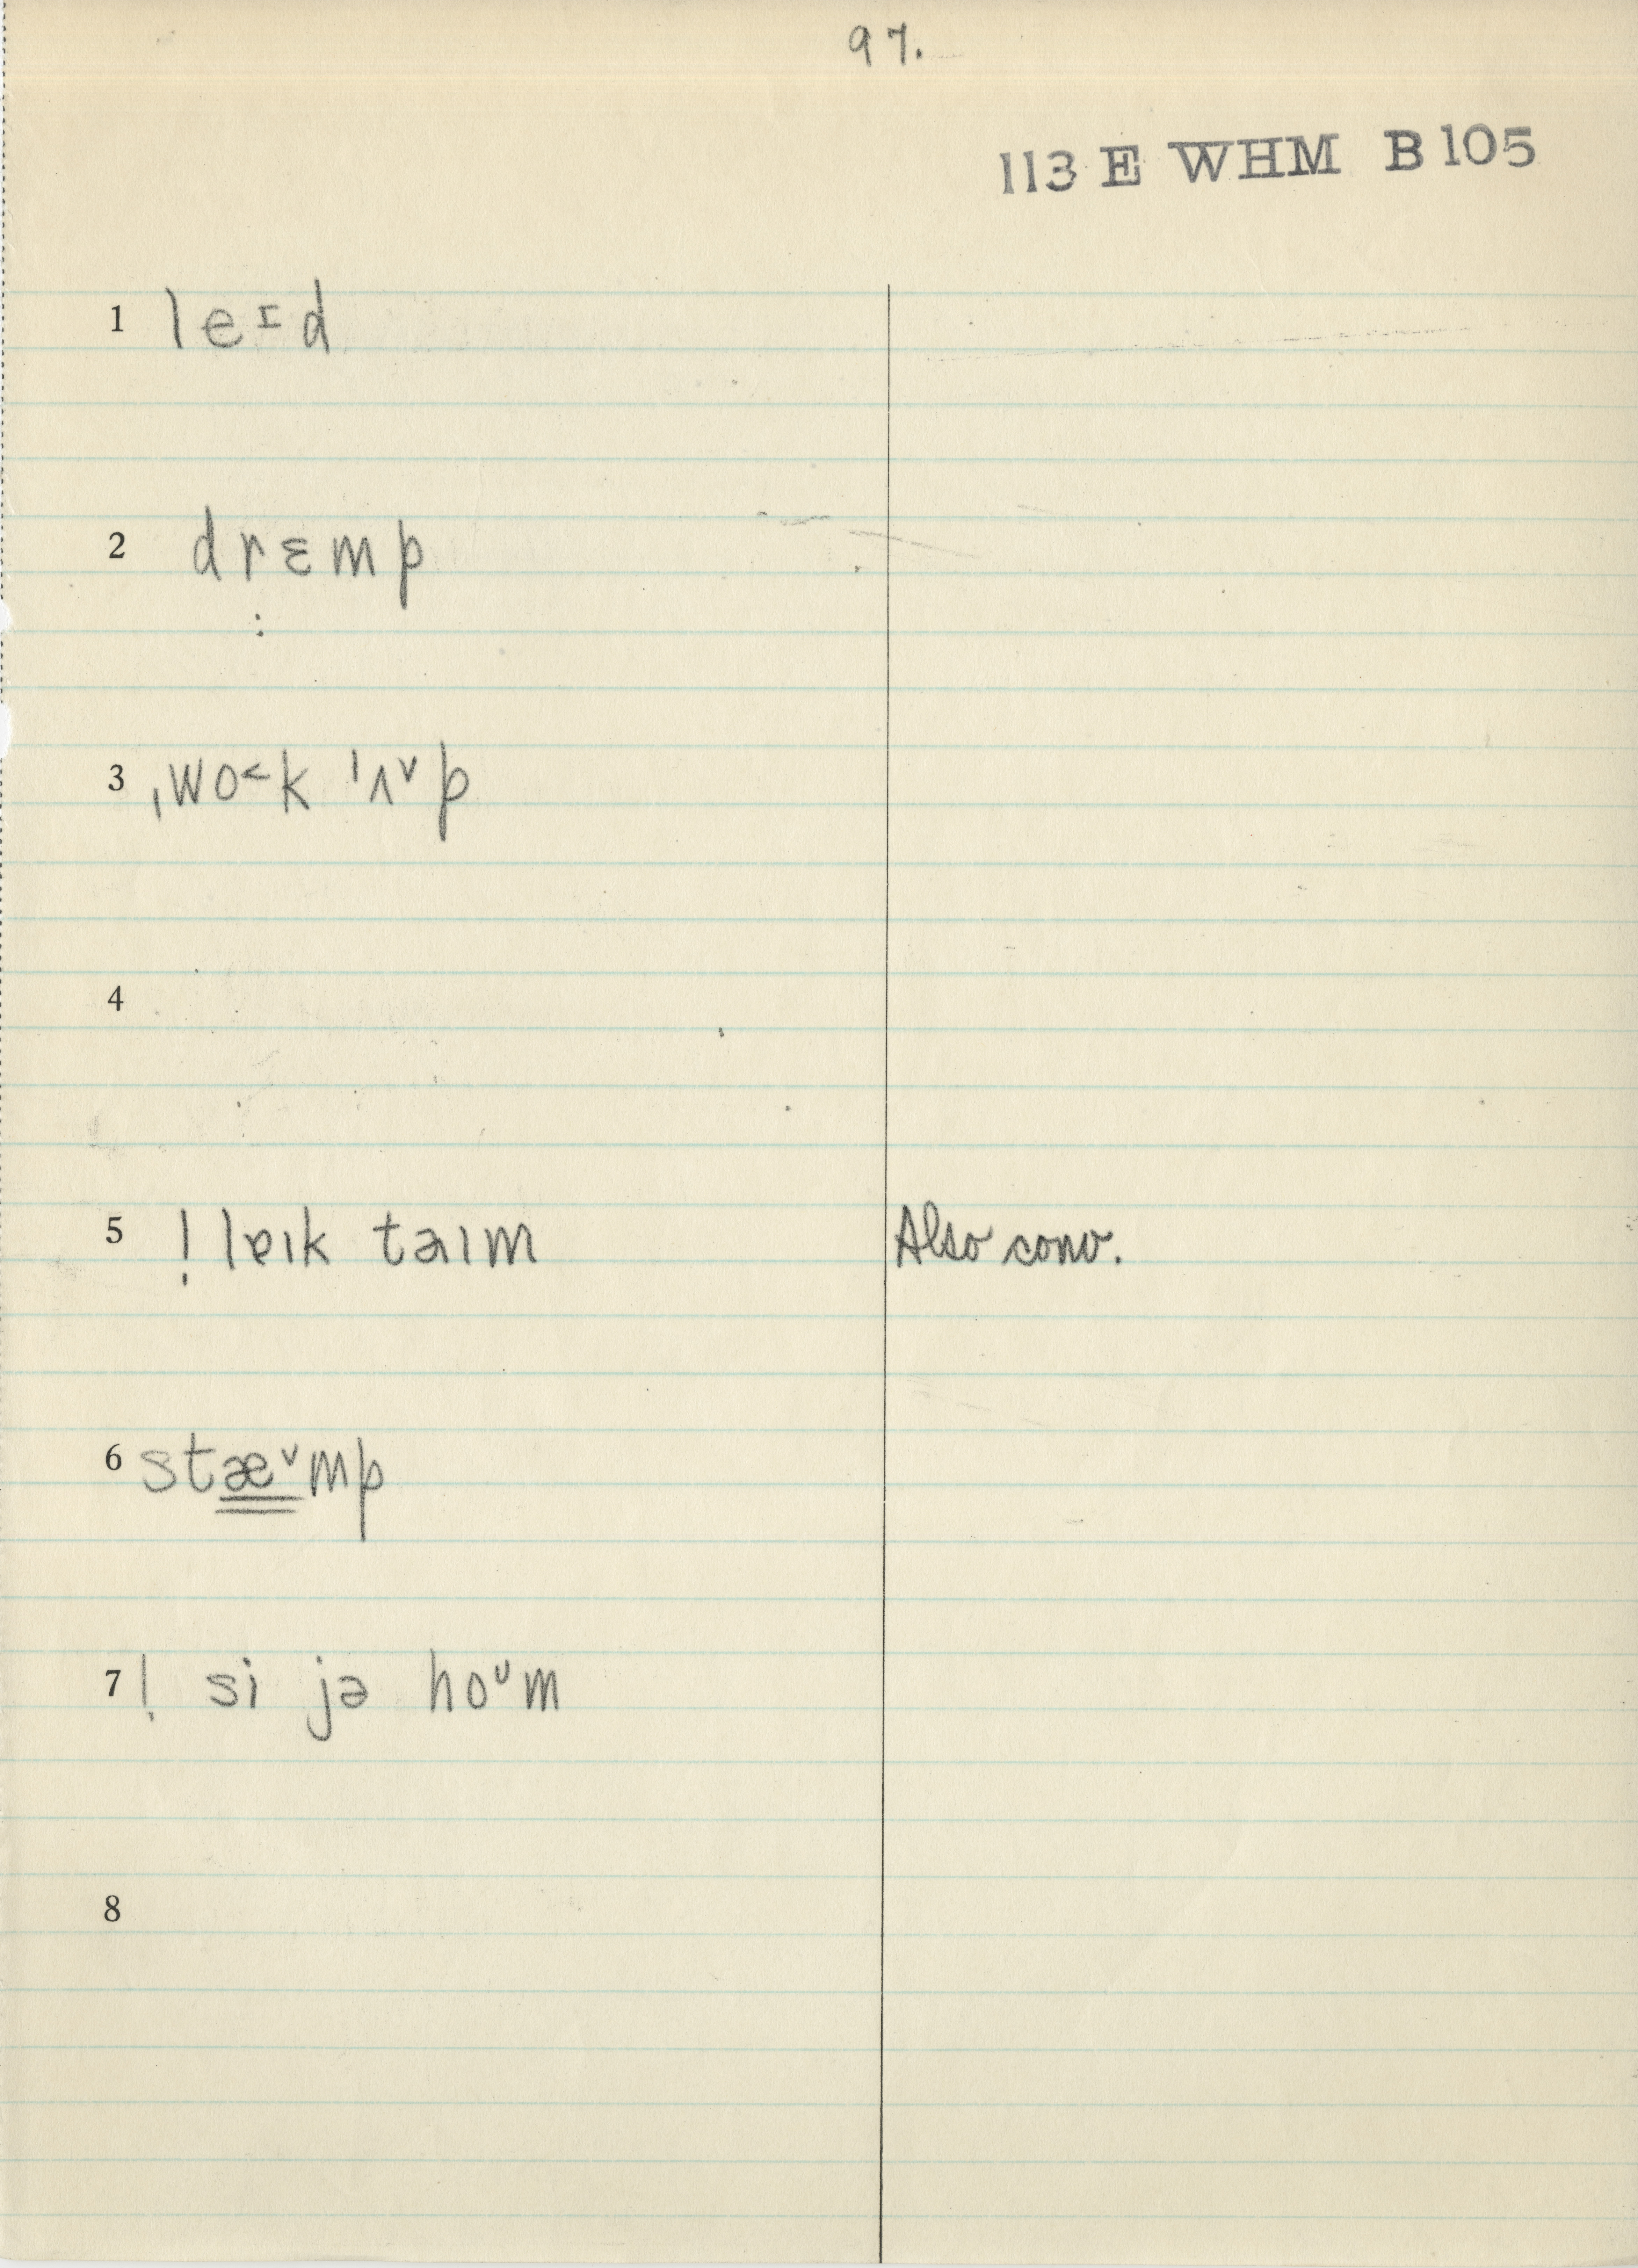 97.
113 E WHM B 105
1 leᶦd
2 drɛmp
:
3 ˌwo˂k ˈʌ˅p
4
5 ! lɐɪk taɪm Also conv.
6 stæ˅mp
7 ! si jə hoᶷm
8